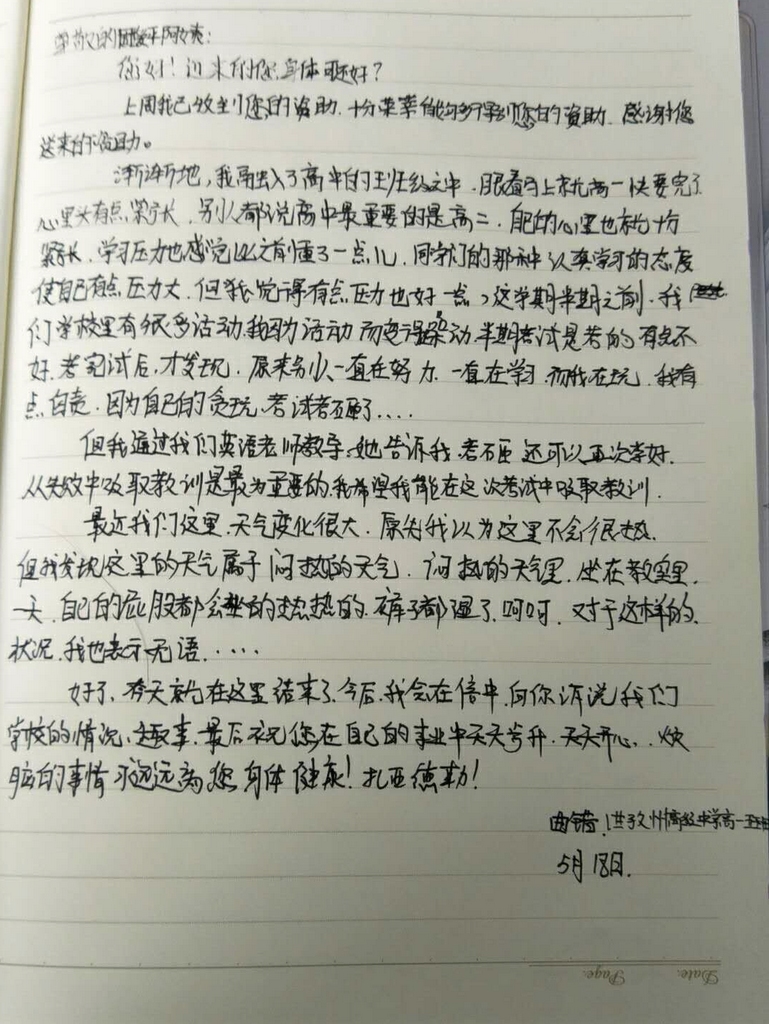 尊敬的阿姨：
您好！近来的您身体可还好？
上周我已收到您的资助，十分荣幸能够得到您的资助，感谢您
送来的资助。
渐渐地，我融入了高中的班级之中，眼看马上就高一快要完了
心里头有点紧张，别人都说高中最重要的是高二，自己的心里也就十分
紧张，学习压力也感觉比之前懂了一点儿，同学们的那种认真学习的态度
使自己有点压力大，但我觉得有点压力也好一点，这学期半期之前，我
们学校里有很多活动，我因为活动而变得躁动，半期考试是考的有点不
好，考完试后，才发现，原来别人一直在努力，一直在学习，而我在玩，我有
点自责，因为自己的贪玩，考试考砸了....
但我通过我们英语老师教导，她告诉我，考砸还可以再次考好，
从失败中吸取教训是最为重要的，我希望我能在这次考试中吸取教训．
最近我们这里，天气变化很大，原先我以为这里不会很热，
但我发现这里的天气属于闷热的天气，闷热的天气里，坐在教室里，
一天，自己的屁股都会坐的热热的，裤子都湿了，呵呵，对于这样的，
状况，我也表示无语，....
好了，今天就在这里结束了，今后，我会在信中，向你诉说我们
学校的情况、趣事，最后祝您在自己的事业中天天芩升，天天开心，烦
恼的事情永远远离您，身体健康！扎西德勒！
州高级中学高一
5月18日．
Date:
Page: